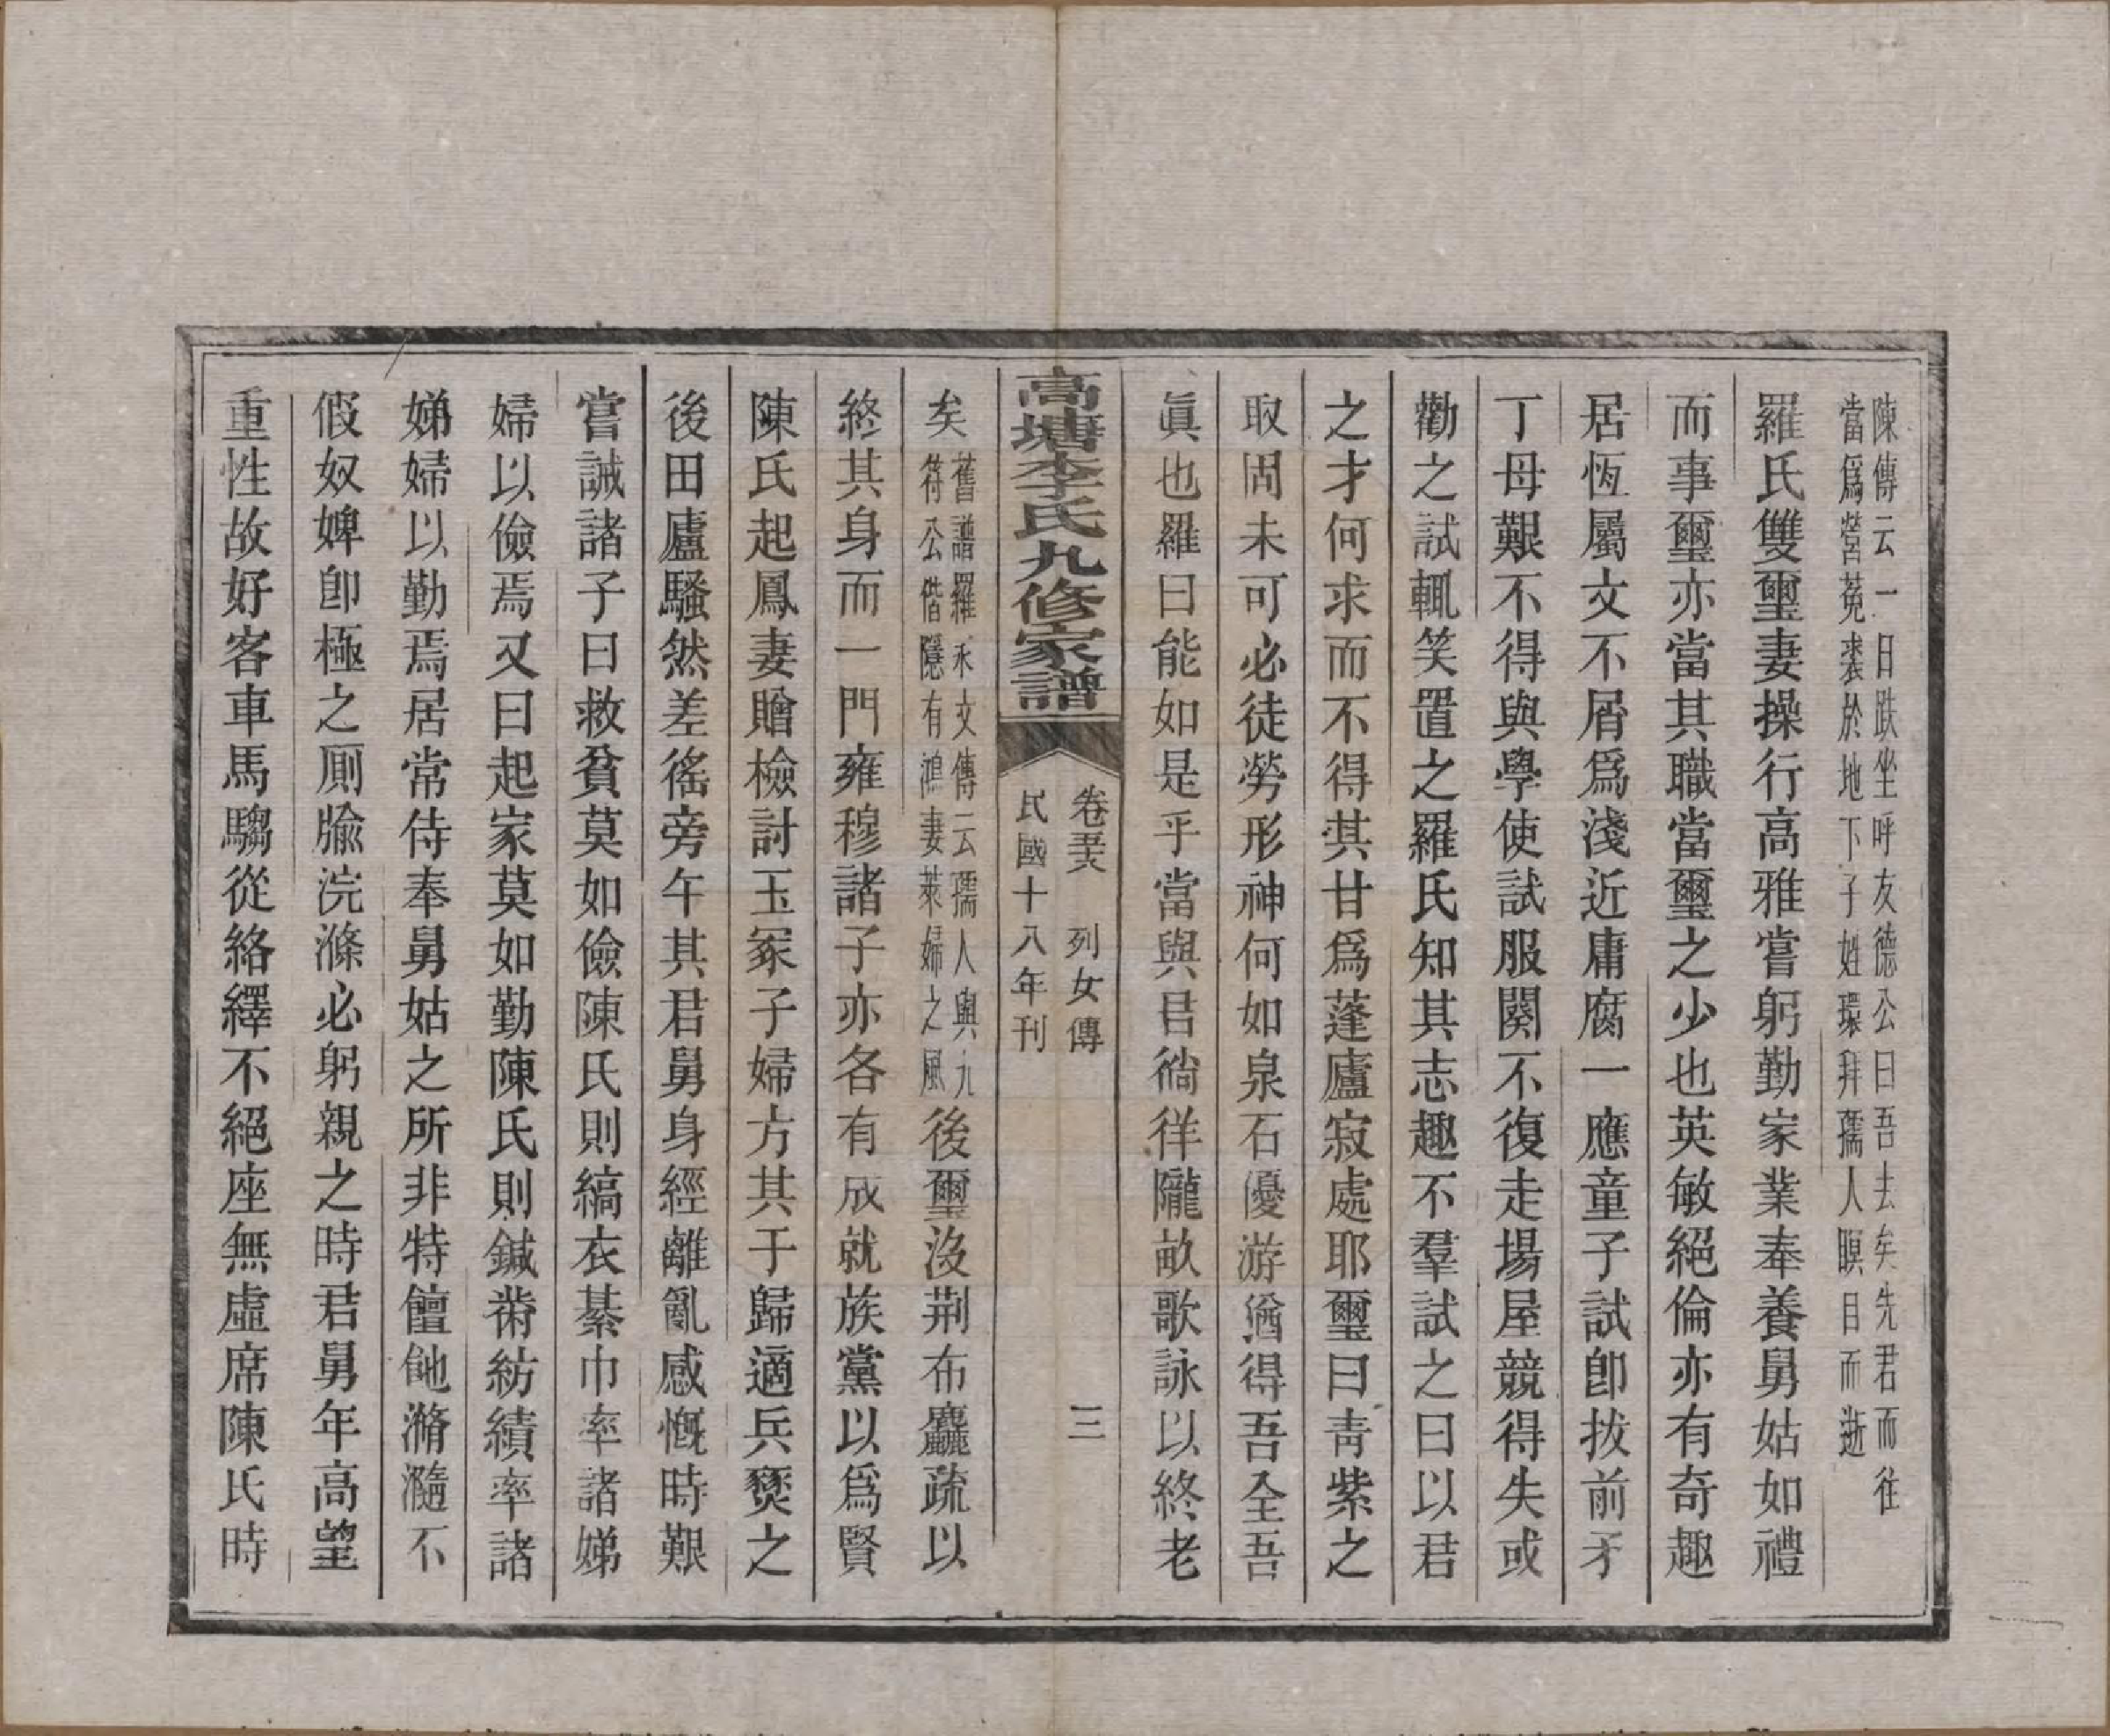 陳傳云一日趺坐呼友德公曰吾去矣先君而往
當爲營菟裘於地下子姓環拜孺人瞑目而逝
羅氏雙璽妻操行高雅嘗躬勤家業奉養舅姑如禮
而事璽亦當其職當璽之少也英敏絕倫亦有奇趣
居恆屬文不屑爲淺近庸腐一應童子試卽拔前矛
丁母艱不得與學使試服闋不復走場屋競得失或
勸之試輒笑置之羅氏知其志趣不羣試之曰以君
之才何求而不得其甘爲蓬廬寂處耶璽曰靑紫之
取固未可必徒勞形神何如泉石優游猶得吾全吾
眞也羅曰能如是乎當與君徜徉隴畝歌詠以終老
高塘李氏九修家譜
卷 列女傳 三
民國十八年刊
矣舊譜羅永文傳云孺人與九
符公偕隱有鴻妻萊婦之風後璽沒荆布麤疏以
終其身而一門雍穆諸子亦各有成就族黨以爲賢
陳氏起鳳妻贈檢討玉冢子婦方其于歸適兵燹之
後田廬騷然差徭旁午其君舅身經離亂感慨時艱
嘗誡諸子曰救貧莫如儉陳氏則縞衣綦巾率諸娣
婦以儉焉又曰起家莫如勤陳氏則鍼黹紡績率諸
娣婦以勤焉居常侍奉舅姑之所非特饘酏滫瀡不
假奴婢卽極之厠牏浣滌必躬親之時君舅年高望
重性故好客車馬騶從絡繹不絕座無虛席陳氏時